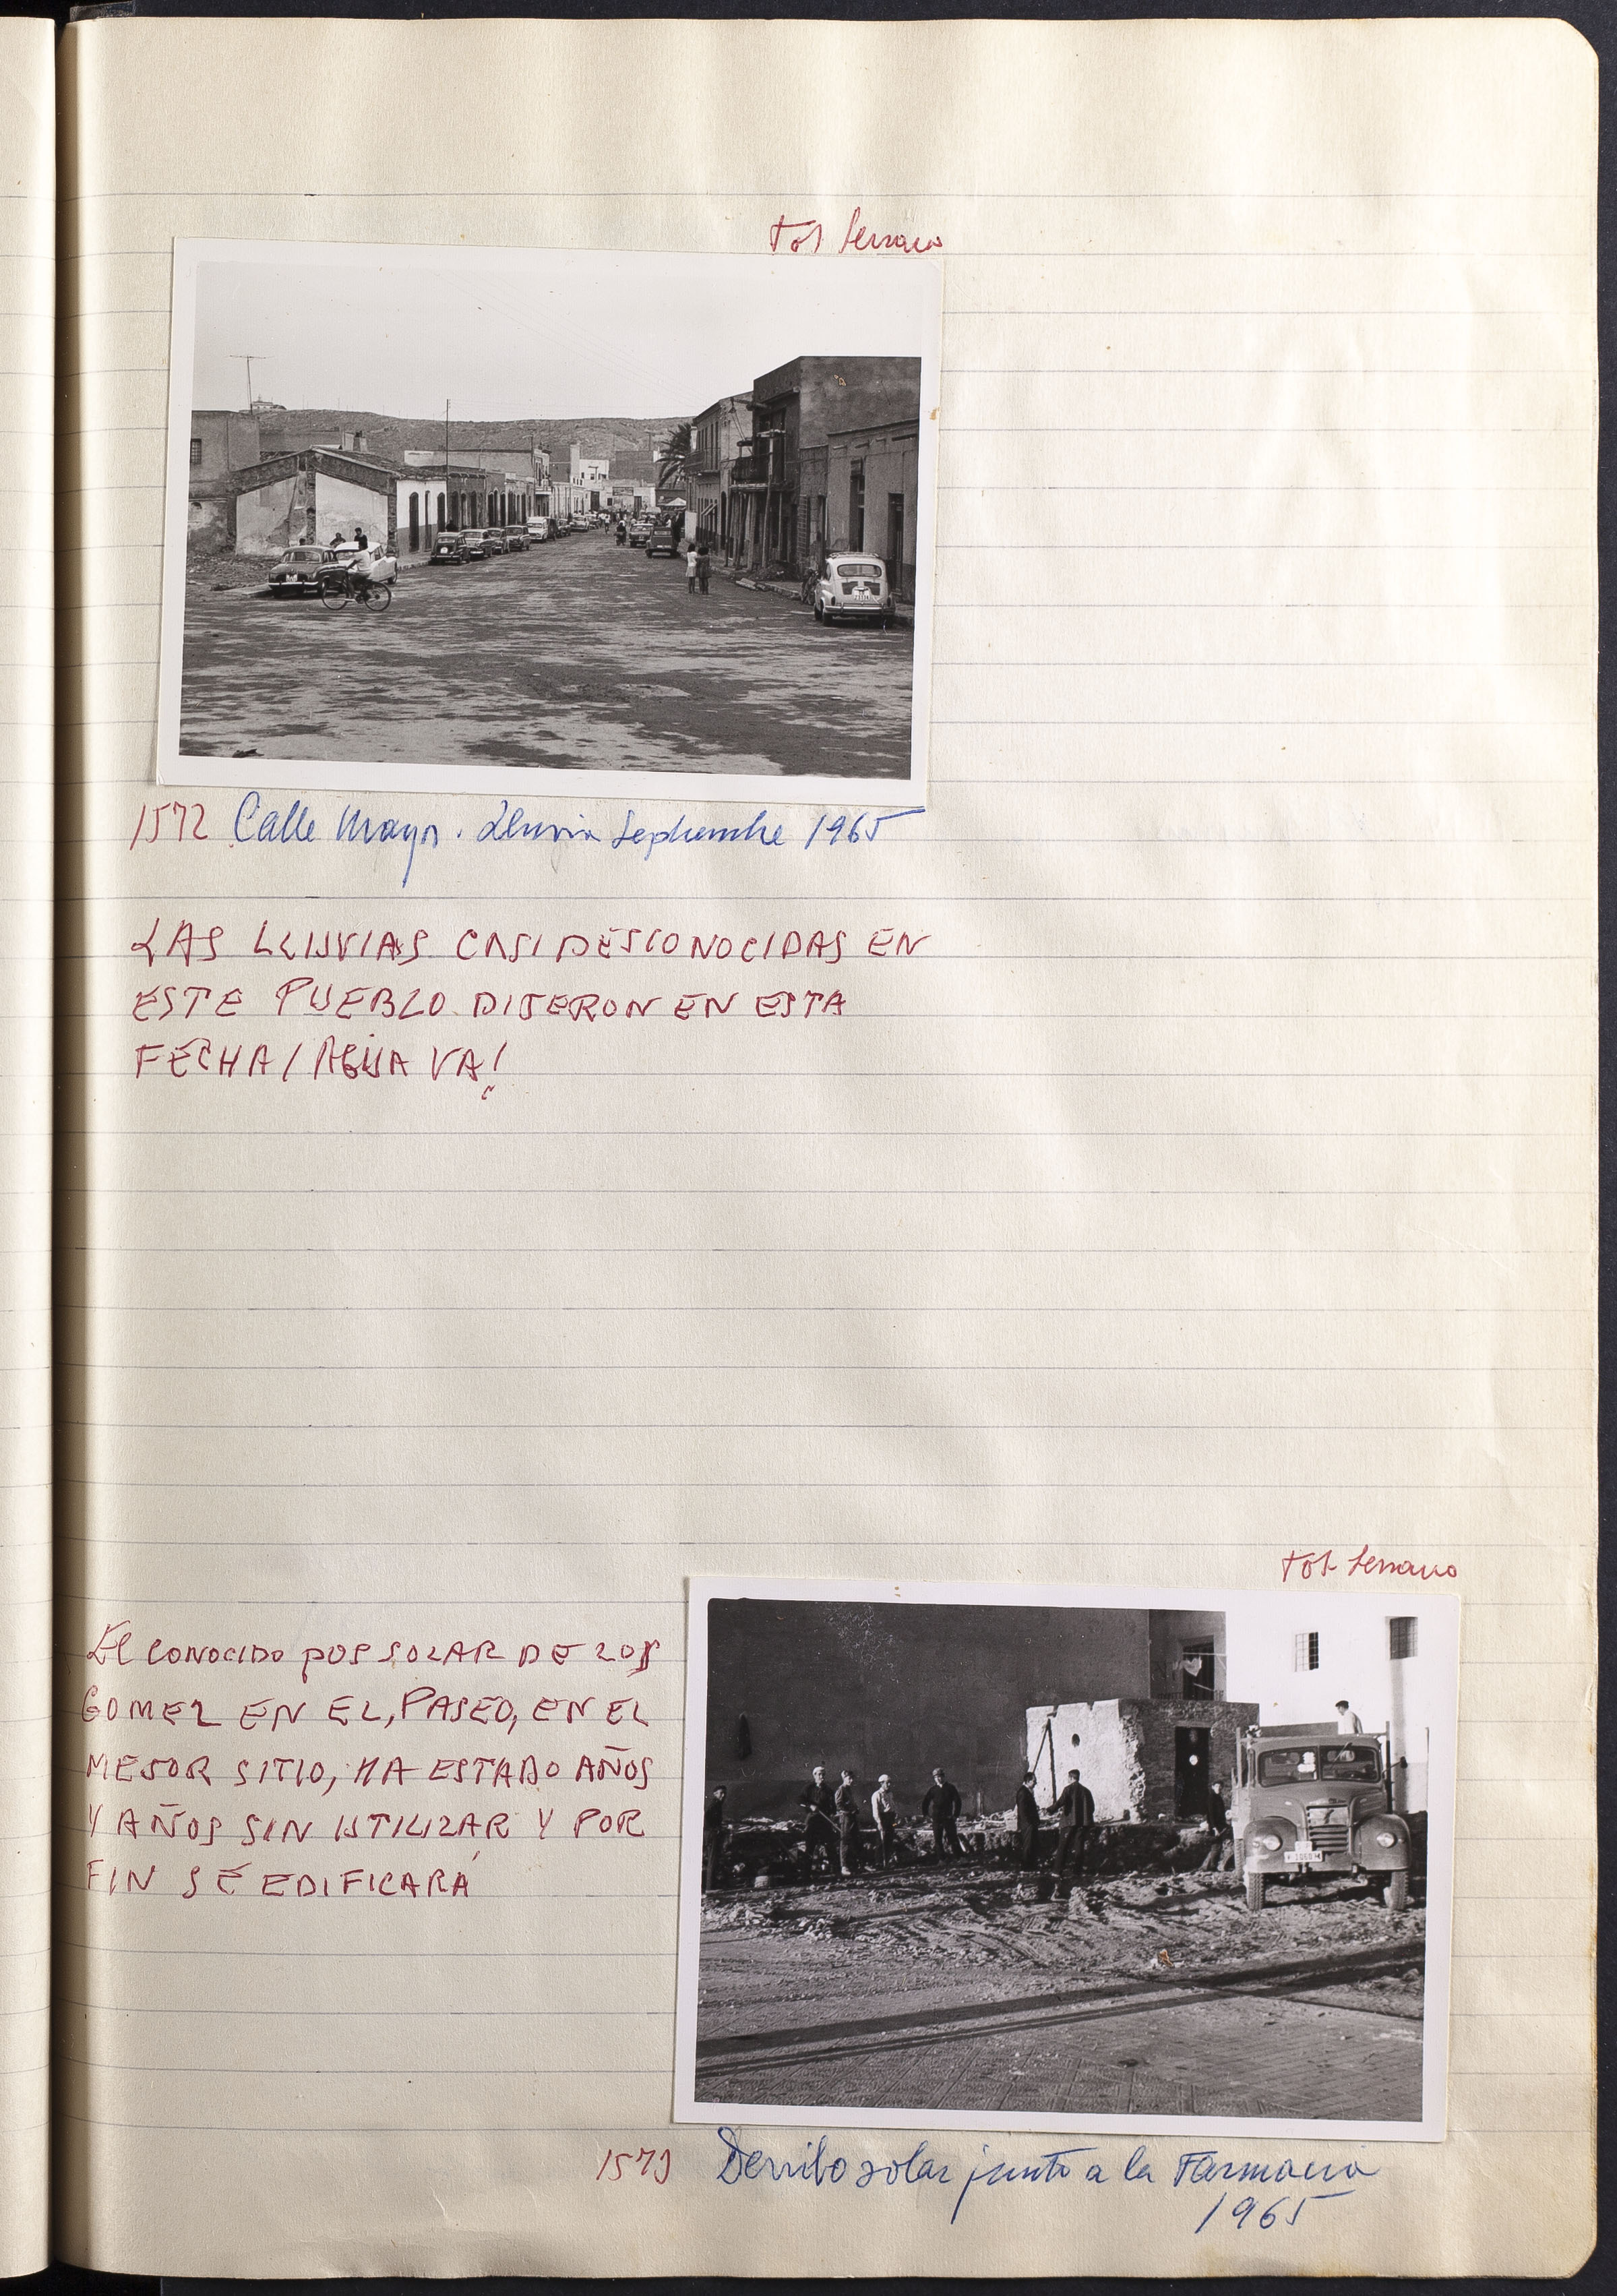 Fot Serrano
1572 Calle Mayor. Lluvia Septiembre 1965
LAS LLUVIAS CASI DESCONOCIDAS EN
ESTE PUEBLO DIJERON EN ESTA
FECHA ¡AGUA VA!
Fot Serrano
El CONOCIDO POR SOLAR DE LOS
GOMEZ EN EL, PASEO, EN EL
MEJOR SITIO, HA ESTADO AÑOS
Y AÑOS SIN UTILIZAR Y POR
FIN SE EDIFICARÁ
1573 Derribo solar junto a la Farmacia
1965